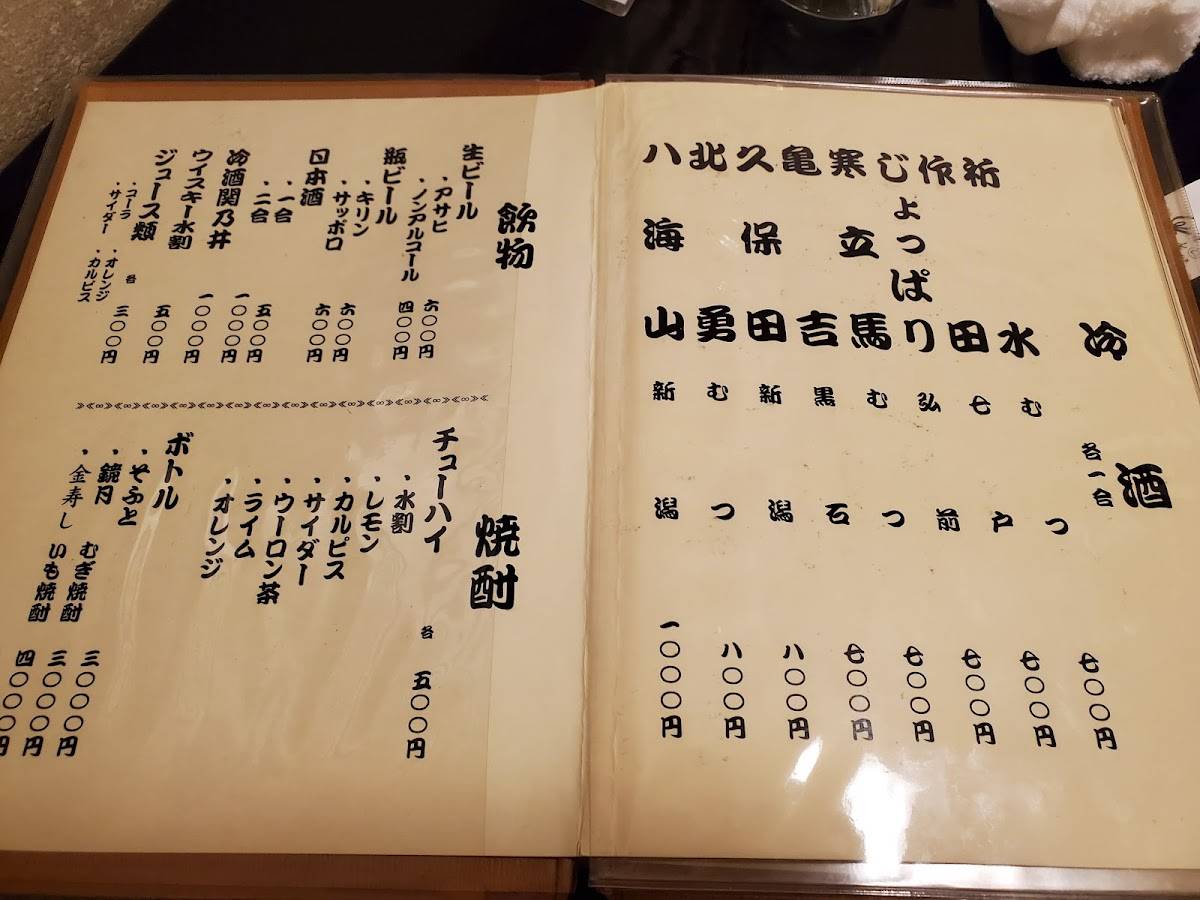 冷酒
各一合
祈水 むつ 七〇〇円
作田 七戸 七〇〇円
じょっぱり 弘前 七〇〇円
寒立馬 むつ 七〇〇円
亀吉 黒石 七〇〇円
久保田 新潟 八〇〇円
北勇 むつ 八〇〇円
八海山 新潟 一〇〇〇円
飲物
生ビール
・アサヒ 六〇〇円
・ノンアルコール 四〇〇円
瓶ビール
・キリン 六〇〇円
・サッポロ 六〇〇円
日本酒
・一合 五〇〇円
・二合 一〇〇〇円
冷酒関乃井 一〇〇〇円
ウイスキー水割 五〇〇円
ジュース類 各 三〇〇円
・コーラ ・オレンジ
・サイダー ・カルピス
焼酎
チューハイ 各 五〇〇円
・水割
・レモン
・カルピス
・サイダー
・ウーロン茶
・ライム
・オレンジ
ボトル
・そふと むぎ焼酎 三〇〇〇円
・鏡月 三〇〇〇円
・金寿し いも焼酎 四〇〇〇円